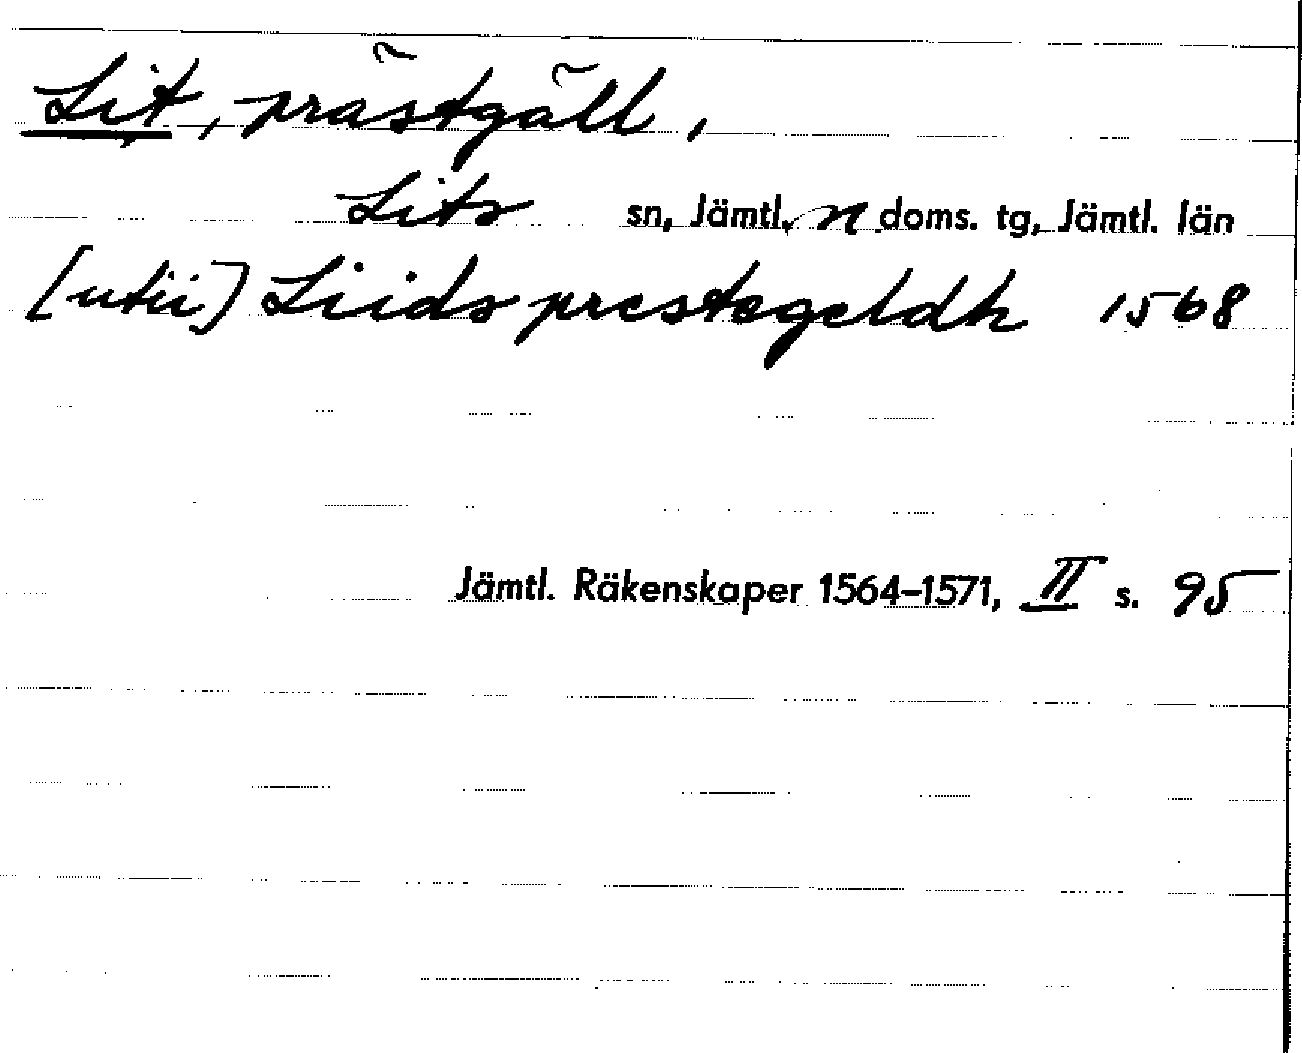 Lit, prästgäll,
Lits sn, Jämtl. n doms. tg, Jämtl. län
[utii] Liids prestegeldh 1568
Jämtl. Räkenskaper 1564–1571, II s. 95